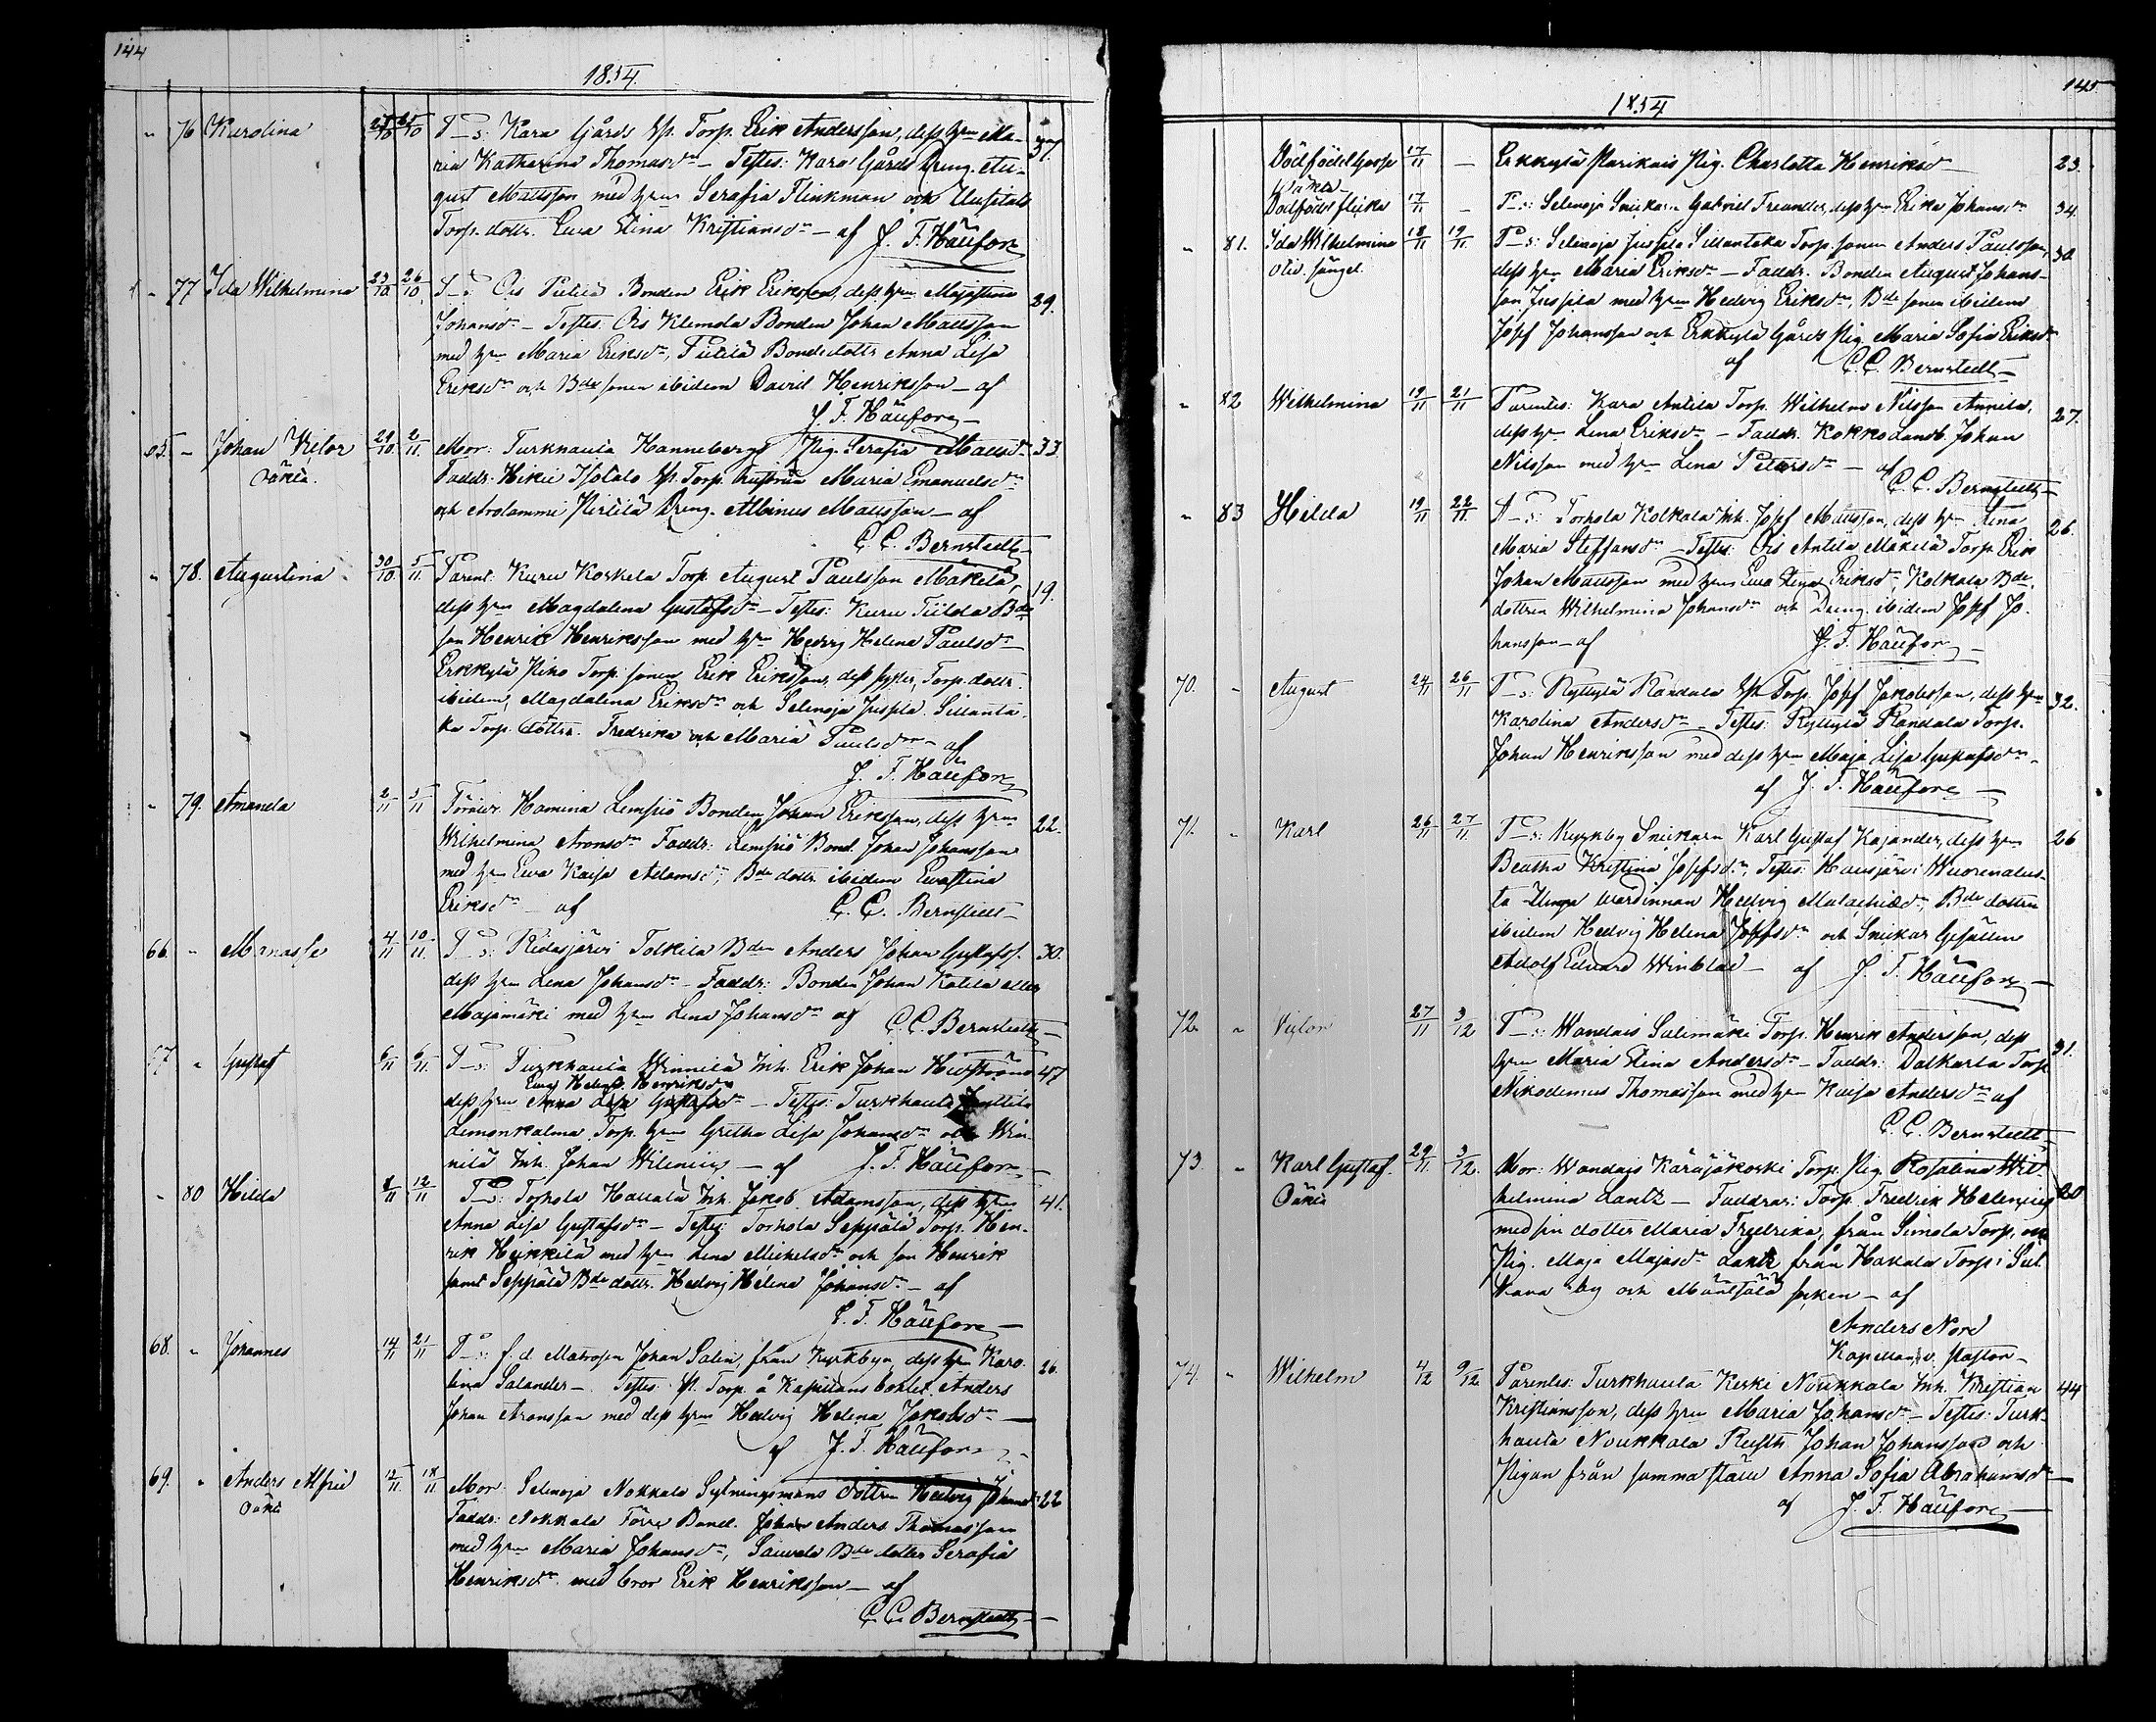 144
1854.
" 76 Karolina 25/10 25/10 P_s: Kara Gårds Torp. Erik Andersson, dess hru Ma- 37.
ria Katharina Thomasdr – Testes: Kara Gårds Dreng. Au-
gust Mattsson med hru Serafia Flinkman och Uusitalo
Torp. dottr. Ewa Stina Kristiansdr – af J. F. Häufore
" 77 Ida Wilhelmina 23/10 26/10 P_s: Ois Bonden Erik Eriksson, dess hru Majastina 29.
Johansdr – Testes. Ois Klemola Bonden Johan Mattsson
med hru Maria Eriksdr, Bondedottr Anna Lisa
Eriksdr och Bdesonen ibidem David Henriksson – af
J. F. Häufore
65. " Johan Viktor 29/10 2/11 Mor: Turkhauta Hanneberg Pig. Serafia Mattsdr 33
oäkta. Faddr. Torp. Maria Emanuelsdr
och Pirtilä Dreng. Albinus Mattsson – af
C. C. Bernstedt
" 78. Augustina 30/10 5/11 Parent: Kuru Koskela Torp. August Paulsson Mäkelä, 19.
dess hru Magdalena Gustafsdr – Testes: Kuru Tiilda Bde
son Henric Henriksson med hru Hedvig Helena Paulsdr
Erkkylä Torp. sonen Erik Eriksson, dess syster, Torp. dottr.
ibidem, Magdalena Eriksdr och Selenoja Juspila Sillanta-
ka Torp. döttra. Fredrika och Maria Paulsdr – af
J. F. Häufore
" 79. Amanda 2/11 5/11 Hamina Lempiö Bonden Johan Eriksson, dess hru 22.
Wilhelmina Aronsdr Faddr: Lempiö Bond. Johan Johansson
med hru Ewa Kaisa Adamsdr, Bde dottr ibidem Ewastina
Eriksdr – af C. C. Bernstedt
66. " Manasse 4/11 10/11 P_s: Ridasjärvi Tolkila Bden Anders Johan Gustafss. 30.
dess hru Lena Johansdr – Faddr: Bonden Johan Katila eller
Majamäki med hru Lena Johansdr af C. C. Bernstedt
67 " Gustaf 6/11 6/11 P_s: Turkhauta Winnilä Inh. Erik Johan 47
Ewa Helena Henriksdr
dess hru Anna Lisa Gustafsdr – Testes: Turkhauta
Limonkalma Torp. hru Gretha Lisa Johansdr och Win-
nilä Inh. Johan Wilenius – af J. F. Häufore
" 80 Hilda 8/11 12/11 P_s: Torhola Hattala Inh. Jakob Adamsson, dess hru 41.
Anna Lisa Gustafsdr – Testes: Torhola Seppälä Torp. Hen-
rik Heikkilä med hru Lena Michelsdr och son Henrik
samt Seppälä Bde dottr. Hedvig Helena Johansdr – af
J. F. Häufore
68. " Johannes 14/11 21/11 P_s: f.d. Matrosen Johan Salin, från Kyrkbyn, dess hru Karo- 26.
lina Salander – Testes: Torp. å Kapitans bohlet. Anders
Johan Aronsson med dess hru Hedvig Helena Jakobsdr –
af J. F. Häufore
69. " Anders Alfred 12/11 18/11 Mor. Selenoja Nokkala Sytningsmans dottren Hedvig Johansdr 22
oäkta Faddr: Nokkala Förre Bond. Johan Anders Thomasson
med hru Maria Johansdr, Bde dotter Serafia
Henriksdr med bror Erik Henriksson – af
C. C. Bernstedt –
145
1854
Dödfödd Gosse 17/11 – Erkkylä Parikais Pig. Charlotta Henriksdr 23.
oäkta –
Dödfödd flicka 17/11 – P_s: Selenoja Snickaren Gabriel Freander, dess hru Erika Johansdr 34.
" 81. Ida Wilhelmina 18/11 19/11 P_s: Selenoja Juspila Sillantaka Torp. sonen Anders Paulsson, 30.
dess hru Maria Eriksdr – Faddr. Bonden August Johans-
son Juspila med hru Hedvig Eriksdr, Bde sonen ibidem
Josef Johansson och Erkkylä Gårds Pig. Maria Sofia Eriksdr
af C. C. Bernstedt –
" 82 Wilhelmina 19/11 21/11 Parentes: Kara Antila Torp. Wilhelm Nilsson Annila, 27.
dess hru Lena Eriksdr – Faddr. Kokko Landb. Johan
Nilsson med hru Lena Petersdr – af
C. C. Bernstedt –
" 83 Hilda 19/11 22/11 P_s: Torhola Kolkala Inh. Josef Mattsson, dess hru Lena 26.
Maria Steffansdr – Testes: Ois Antila Mäkelä Torp. Erik
Johan Mattsson med hru Ewa Stina Eriksdr, Kolkala Bde
dottren Wilhelmina Johansdr och Dreng. ibidem Josef Jo-
hansson – af J. F. Häufore –
70. " August 24/11 26/11 P_s: Ryttylä Randala Torp. Josef Jakobsson, dess hru 32.
Karolina Andersdr – Testes: Ryttylä Randala Torp.
Johan Henriksson med dess hru Maja Lisa Gustafsdr –
af J. F. Häufore –
71. " Karl 26/11 27/11 P_s: Kyrkby Snickaren Karl Gustaf Kajander, dess hru 26
Beatha Kristina Josefsdr, Testes: Hausjärvi
wärdinnan Hedvig Malachiædr, Bde dottren
ibidem Hedvig Helena Josefsdr och Snickar Gesällen
Adolf Edvard Winblad – af J. F. Häufore –
72 " Viktor 27/11 3/12 P_s: Wandais Salimäki Torp. Henrik Andersson, dess 31.
hru Maria Stina Andersdr – Faddr: Dalkarla Torp.
Nikodemus Thomasson med hru Kaisa Andersdr af
C. C. Bernstedt –
73. " Karl Gustaf. 29/11 3/12. Mor: Wandais Käräjäkoski Torp. Pig. Rosalina Wil- 20
Oäkta helmina Lantz – Faddrar: Torp. Fredrik Helenius
med sin dotter Maria Fredrika, från Simola Torp, och
Pig. Maja Majasdr Lantz från Hakala Torp i Sul-
kava by och Mäntsälä socken – af
Anders Nord
Kapellan, v. Pastor –
74. " Wilhelm 4/12 9/12 Parentes: Turkhauta Keski Noukkala Inh. Kristian 44
Kristiansson, dess hru Maria Johansdr – Testes: Turk-
hauta Noukkala Rusth. Johan Johansson och
Pigan från samma ställe Anna Sofia Abrahamsdr –
af J. F. Häufore –